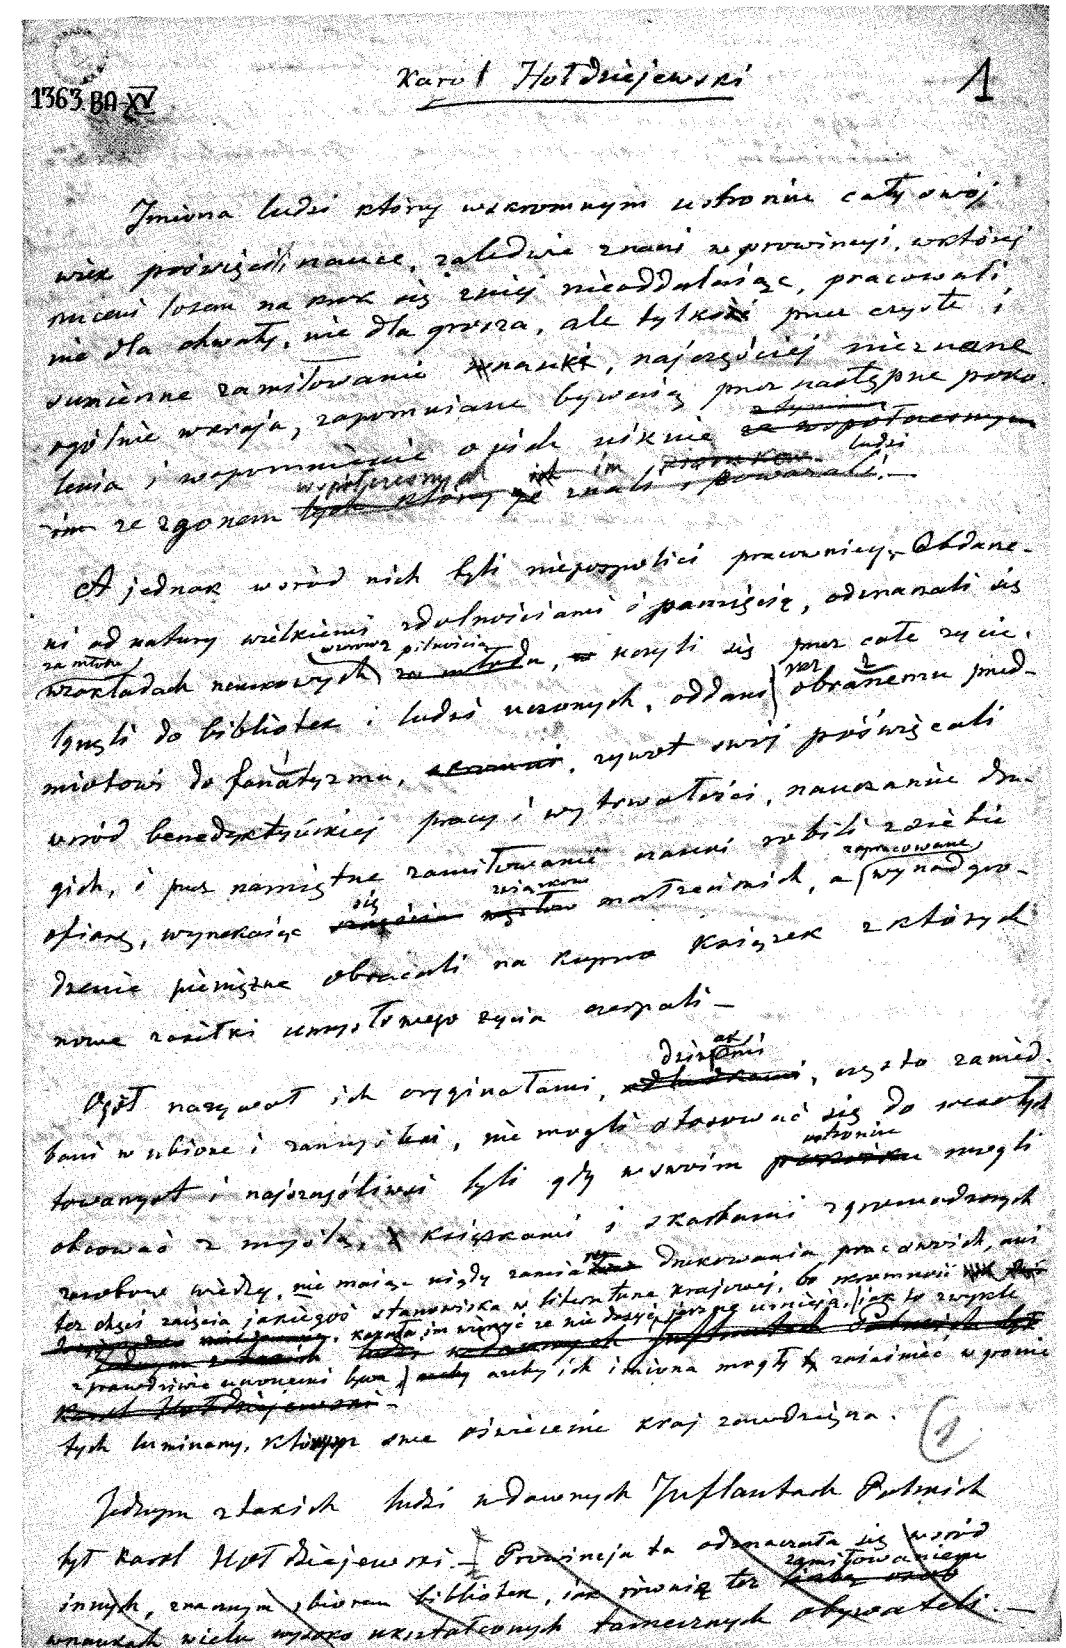 1363 BA XV
Karol Hołdziejewski
1
Imiona ludzi którzy w skromnym ustroniu cały swój
wiek poświęcili nauce, zaledwie znani w prowincyi, w której
rzuceni losem na krok się z niej nieoddalając, pracowali
nie dla chwały, nie dla grosza, ale tylko przez czyste i
sumienne zamiłowanie nauki, najczęściej nieznane
ogólnie w kraju, zapomniane bywają przez następne poko-
lenia i wspomnienie o nich niknie ze współczesnym
ze zgonem współczesnych im ludzi
tych którzy je znali i poważali. —
A jednak wśród nich byli niepospolici pracownicy. Obdarze-
ni od natury wielkiemi zdolnościami i pamięcią, odznaczali się
za młodu wzorową pilnością
w zakładach naukowych za młodu, korzyli się przez całe życie.
lgnęli do bibliotek i ludzi uczonych, oddani raz obranemu przed-
miotowi do fanatyzmu, żywot swój poświęcali
wśród benedyktyńskiej pracy i wytrwałości, nauczanie dru-
gich, i przez namiętne zamiłowanie nauki robili z siebie
zapracowane
ofiarę, wyrzekając się związków małżeńskich, a wynadgro-
dzenie pieniężne obracali na kupno książek z których
nowe zasiłki umysłowego życia czerpali —
Ogół nazywał ich oryginałami, dziwakami, często zanied-
bani w ubiorze i zamyśleni, nie mogli stosować się do
towarzystw i najszczęśliwsi byli gdy w swoim ustroniu mogli
obcować z myślą, książkami i skarbami zgromadzonych
zasobów wiedzy, nie mając nigdy zamiaru drukowania prac swoich, ani
też chęci zajęcia jakiegoś stanowiska w literaturze krajowej, bo skromność
kazała im wierzyć że nie dosyć jeszcze umieją, jak to zwykle
Jednym z takich ludzi w dawnych Inflantach Polskich był
z prawdziwie uczonemi bywa, ich imiona mogły zajaśnieć w gronie
Karol Hołdziejewski —
tych luminarzy, którym swe oświecenie kraj zawdzięcza.
(2)
Jednym z takich ludzi w dawnych Inflantach Polskich
był Karol Hołdziejewski — Prowincja ta odznaczała się wśród
zamiłowaniem
innych, znacznym zbiorem bibliotek, jak równię też liczbą osób
w naukach wielu wysoko ukształconych tamecznych obywateli. —